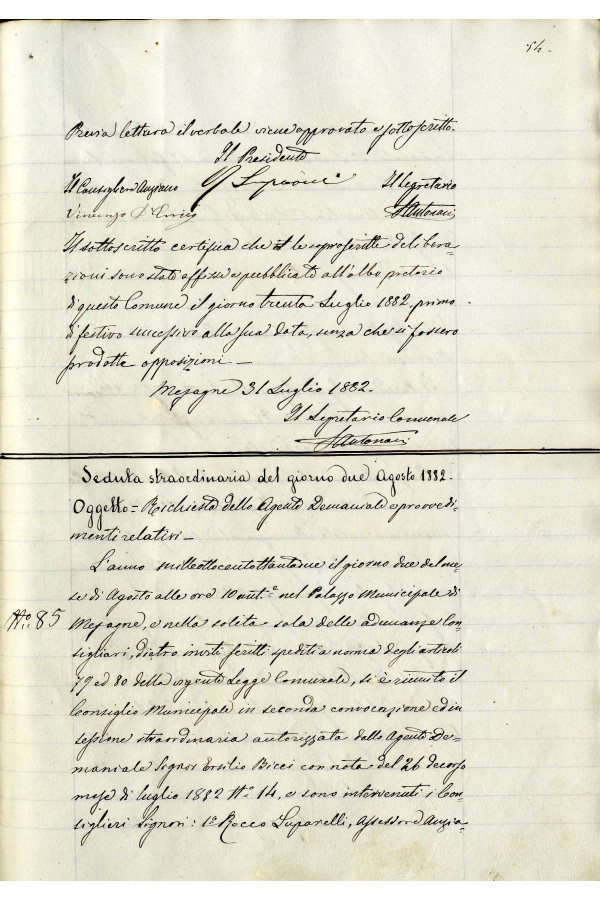 54.
Previa lettura il verbale viene approvato e sottoscritto.
Il Presidente
Il Consigliere Anziano
Il Segretario
Vincenzo d'Enrico
Antonaci
Il sottoscritto certifica che le soprascritte delibera-
zioni sono state affisse e pubblicate all'albo pretorio
di questo Comune il giorno trenta Luglio 1882, primo
dì festivo successivo alla sua data, senza che si fossero
prodotte opposizioni —
Mesagne 31 Luglio 1882.
Il Segretario Comunale
Antonaci
Seduta straordinaria del giorno due Agosto 1882.
Oggetto = Richiesta dello Agente Demaniale e provvedi-
menti relativi —
L'anno milleottocentottantadue il giorno due del me-
se di Agosto alle ore 10 ant.e nel Palazzo Municipale di
No: 85
Mesagne, e nella solita sala delle adunanze Con-
sigliari, dietro inviti scritti spediti a norma degli articoli
79 ed 80 della vigente Legge Comunale, si è riunito il
Consiglio Municipale in seconda convocazione ed in
sessione straordinaria autorizzata dallo Agente De-
maniale Signor Ersilio Bicci con nota del 26 decorso
mese di luglio 1882 No 14, e sono intervenuti i Con-
siglieri Signori: 1o Rocco Luparelli, Assessore Anzia-